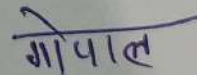 गोपाल